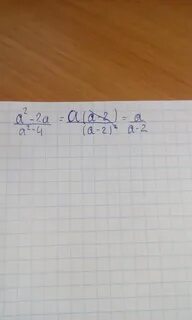 (a² - 2a)/(a² - 4) = a(a - 2)/(a - 2)² = a/(a - 2)